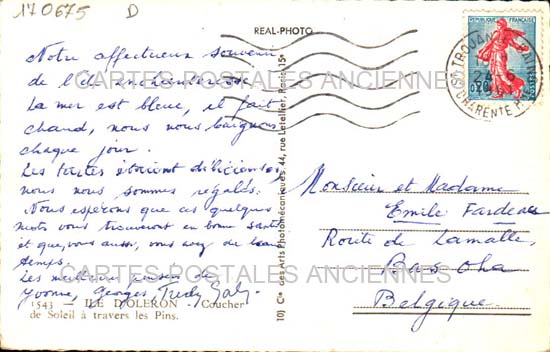 170675 D
REAL-PHOTO
Notre affectueux souvenir
de l'île enchanteresse.
La mer est bleue, il fait
chaud, nous nous baignons
chaque jour.
Les tartes étaient délicieuses,
nous nous sommes régalés.
Nous espérons que ces quelques
mots vous trouveront en bonne santé
et que, vous aussi, vous avez du beau
temps.
Les meilleures pensées de
Yvonne, Georges, Fredy
1543 - ILE D'OLERON - Coucher
de Soleil à travers les Pins.
10) Cie des Arts Photomécaniques, 44, rue Letellier, Paris 15e
REPUBLIQUE FRANÇAISE
CHARENTE
Monsieur et Madame
Emile Fardeau
Route de Lamalle,
Bas Oha
Belgique
CARTES POSTALES ANCIENNES
CARTES POSTALES ANCIENNES